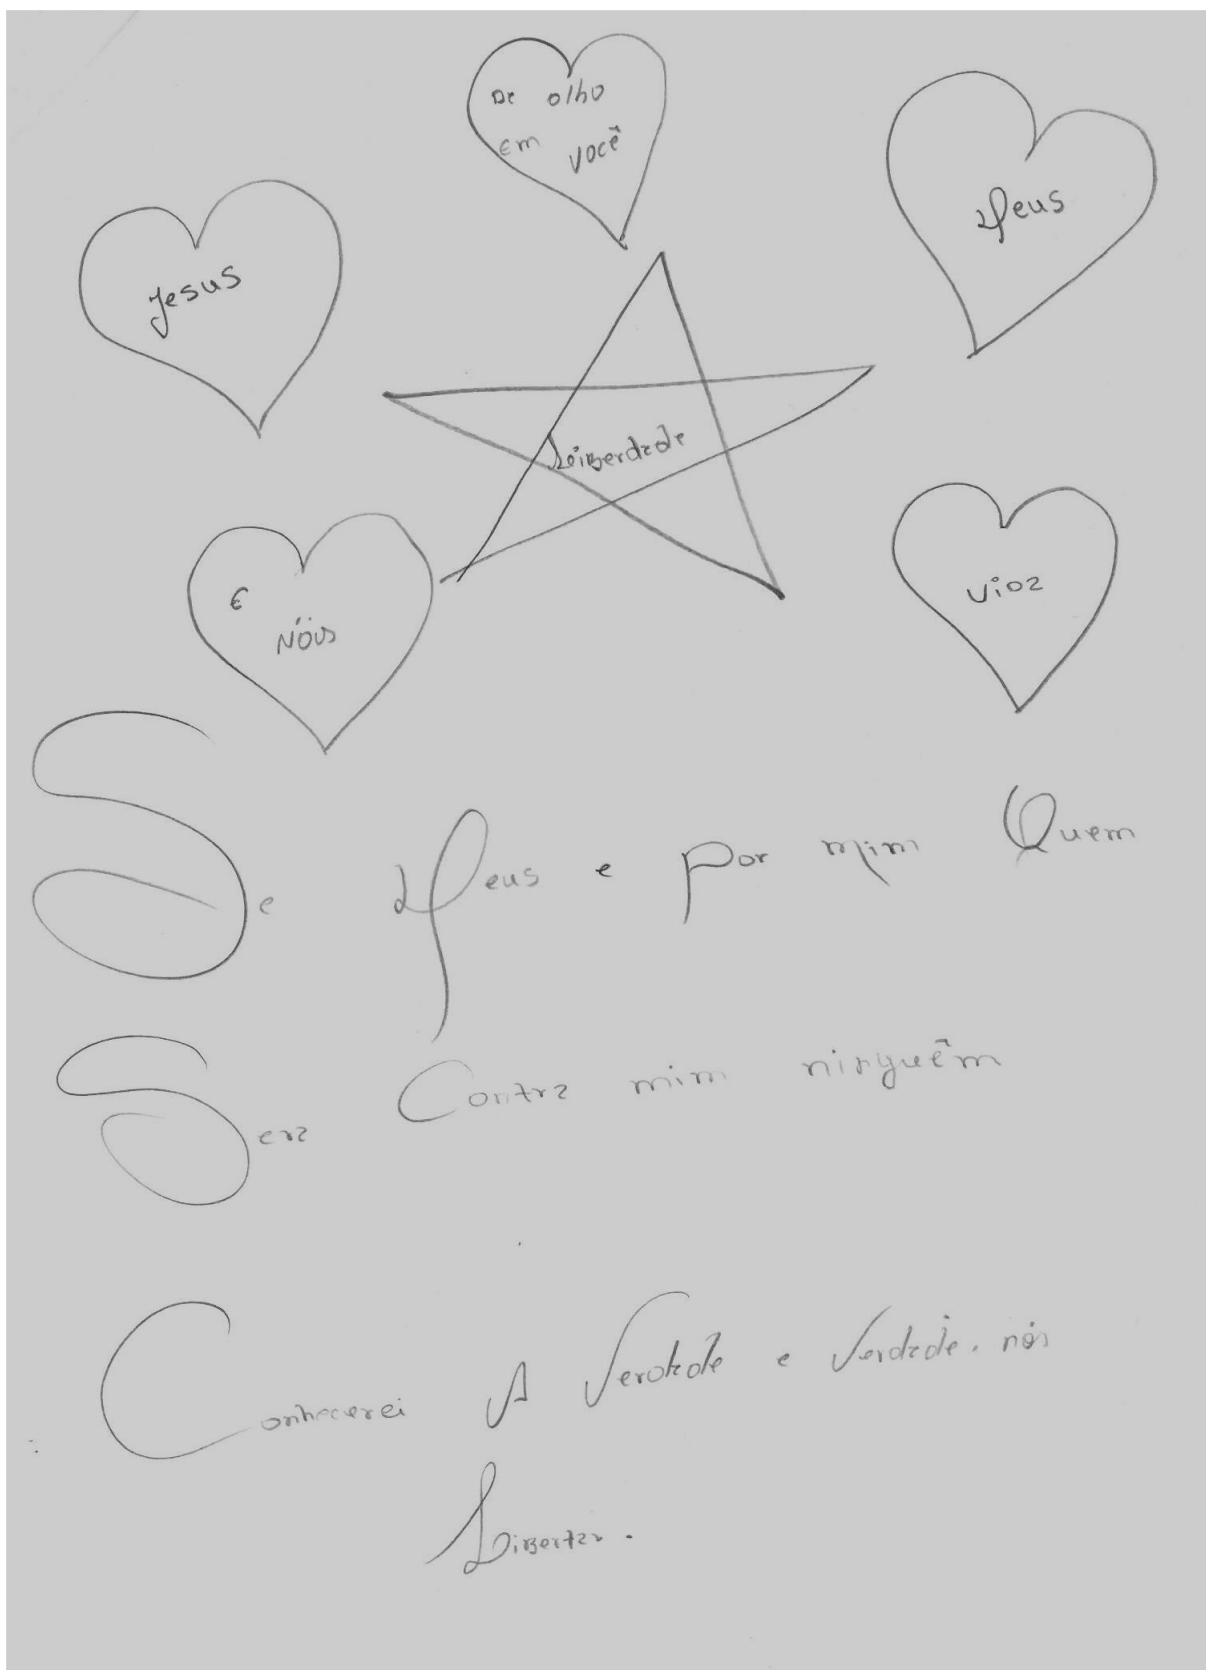 De olho
em você
Deus
Jesus
Leiberdade
E
Nóis
Vioz
Se Deus e por mim Quem
Sera Contra mim ninguêm
Conhecerei A Verdade e Verdade. nós
Libertar.